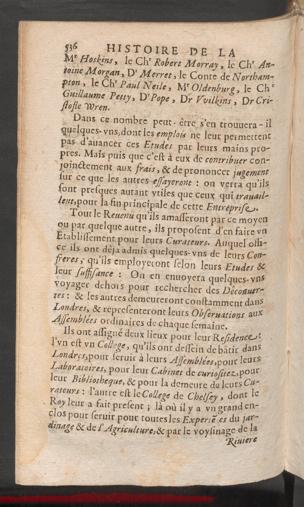 536 HISTOIRE DE LA
Mr Hoskins, le Chr Robert Morray, le Chr An-
toine Morgan, Dr Merret, le Conte de Northam-
pton, le Chr Paul Neile, Mr Oldenburg, le Chr
Guillaume Petty, Dr Pope, Dr Vvilkins, Dr Cri-
stofle Wren.
Dans ce nombre peut-être s'en trouuera-il
quelques-vns, dont les emplois ne leur permettent
pas d'auancer ces Etudes par leurs mains pro-
pres. Mais puis que c'est à eux de contribuer con-
joinctement aux frais, & de prononcer jugement
sur ce que les autres essayeront: on verra qu'ils
sont presques autant vtiles que ceux qui trauail-
lent, pour la fin principale de cette Entreprise.
Tout le Reuenu qu'ils amasseront par ce moyen
ou par quelque autre, ils proposent d'en faire vn
Etablissement pour leurs Curateurs. Auquel offi-
ce ils ont déja admis quelques-vns de leurs Con-
freres, qu'ils employeront selon leurs Etudes &
leur suffisance: On en enuoyera quelques-vns
voyager dehors pour rechercher des Décoauer-
tes: & les autres demeureront constamment dans
Londres, & representeront leurs Obseruations aux
Assemblées ordinaires de chaque semaine.
Ils ont assigné deux lieux pour leur Residence:
l'vn est vn College, qu'ils ont dessein de bâtir dans
Londres, pour seruir à leurs Assemblées, pour leurs
Laboratoires, pour leur Cabinet de curiositez, pour
leur Bibliotheque, & pour la demeure de leurs Cu-
rateurs: l'autre est le College de Chelsey, dont le
Roy leur a fait present; là où il y a vn grand en-
clos pour seruir pour toutes les Experiẽces du jar-
dinage & de l'Agriculture, & par le voysinage de la
Riuiere